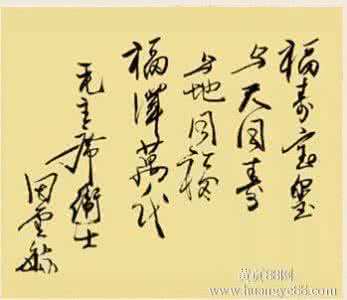 福寿宝玺
与天同寿
与地同龄
福泽萬代
毛主席衛士
田云毓
黄页88网
www.huangye88.com